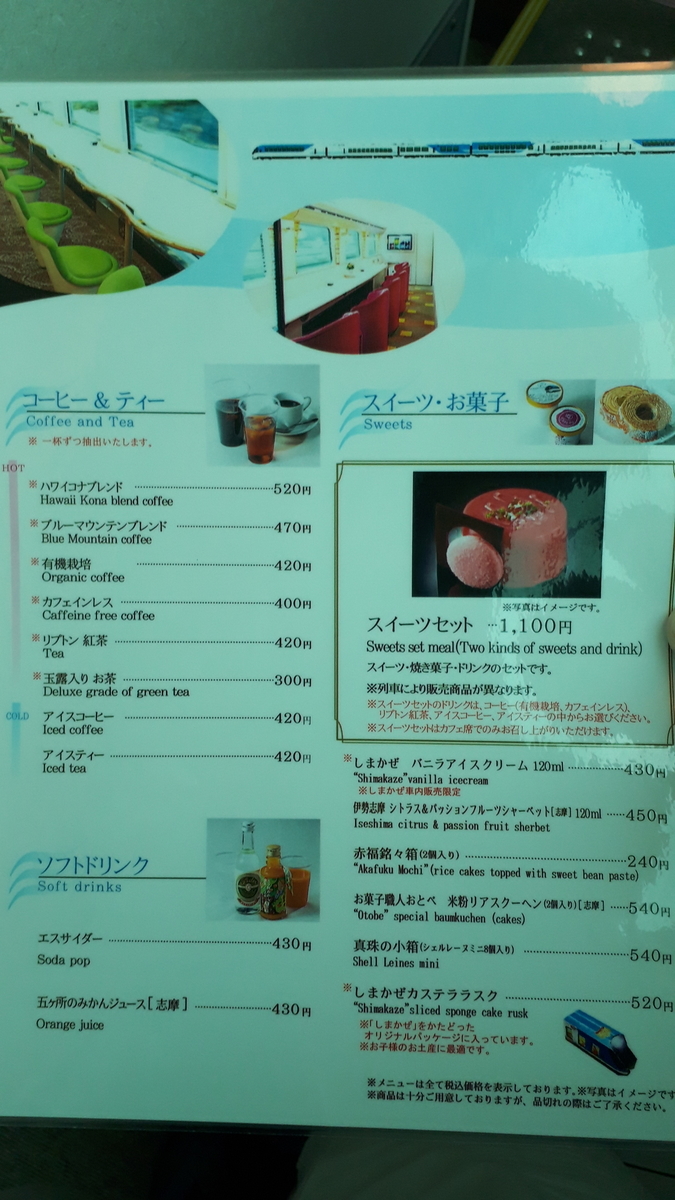 コーヒー & ティー
Coffee and Tea
※ 一杯ずつ抽出いたします。
HOT
※ハワイコナブレンド ……520円
Hawaii Kona blend coffee
※ブルーマウンテンブレンド ……470円
Blue Mountain coffee
※有機栽培 ……420円
Organic coffee
※カフェインレス ……400円
Caffeine free coffee
※リプトン 紅茶 ……420円
Tea
※玉露入り お茶 ……300円
Deluxe grade of green tea
COLD
アイスコーヒー ……420円
Iced coffee
アイスティー ……420円
Iced tea
ソフトドリンク
Soft drinks
エスサイダー ……430円
Soda pop
五ヶ所のみかんジュース[志摩] ……430円
Orange juice
スイーツ・お菓子
Sweets
※写真はイメージです。
スイーツセット …1,100円
Sweets set meal(Two kinds of sweets and drink)
スイーツ・焼き菓子・ドリンクのセットです。
※列車により販売商品が異なります。
※スイーツセットのドリンクは、コーヒー(有機栽培、カフェインレス)、
リプトン紅茶、アイスコーヒー、アイスティーの中からお選びください。
※スイーツセットはカフェ席でのみお召し上がりいただけます。
※しまかぜ バニラアイスクリーム 120ml ……430円
"Shimakaze"vanilla icecream
※しまかぜ車内販売限定
伊勢志摩 シトラス&パッションフルーツシャーベット[志摩]120ml ……450円
Iseshima citrus & passion fruit sherbet
赤福銘々箱(2個入り) ……240円
"Akafuku Mochi"(rice cakes topped with sweet bean paste)
お菓子職人おとべ 米粉リアスクーヘン(2個入り)[志摩] ……540円
"Otobe" special baumkuchen (cakes)
真珠の小箱(シェルレーヌミニ8個入り) ……540円
Shell Leines mini
※しまかぜカステララスク ……520円
"Shimakaze"sliced sponge cake rusk
※「しまかぜ」をかたどった
オリジナルパッケージに入っています。
※お子様のお土産に最適です。
※メニューは全て税込価格を表示しております。※写真はイメージです
※商品は十分ご用意しておりますが、品切れの際はご了承ください。